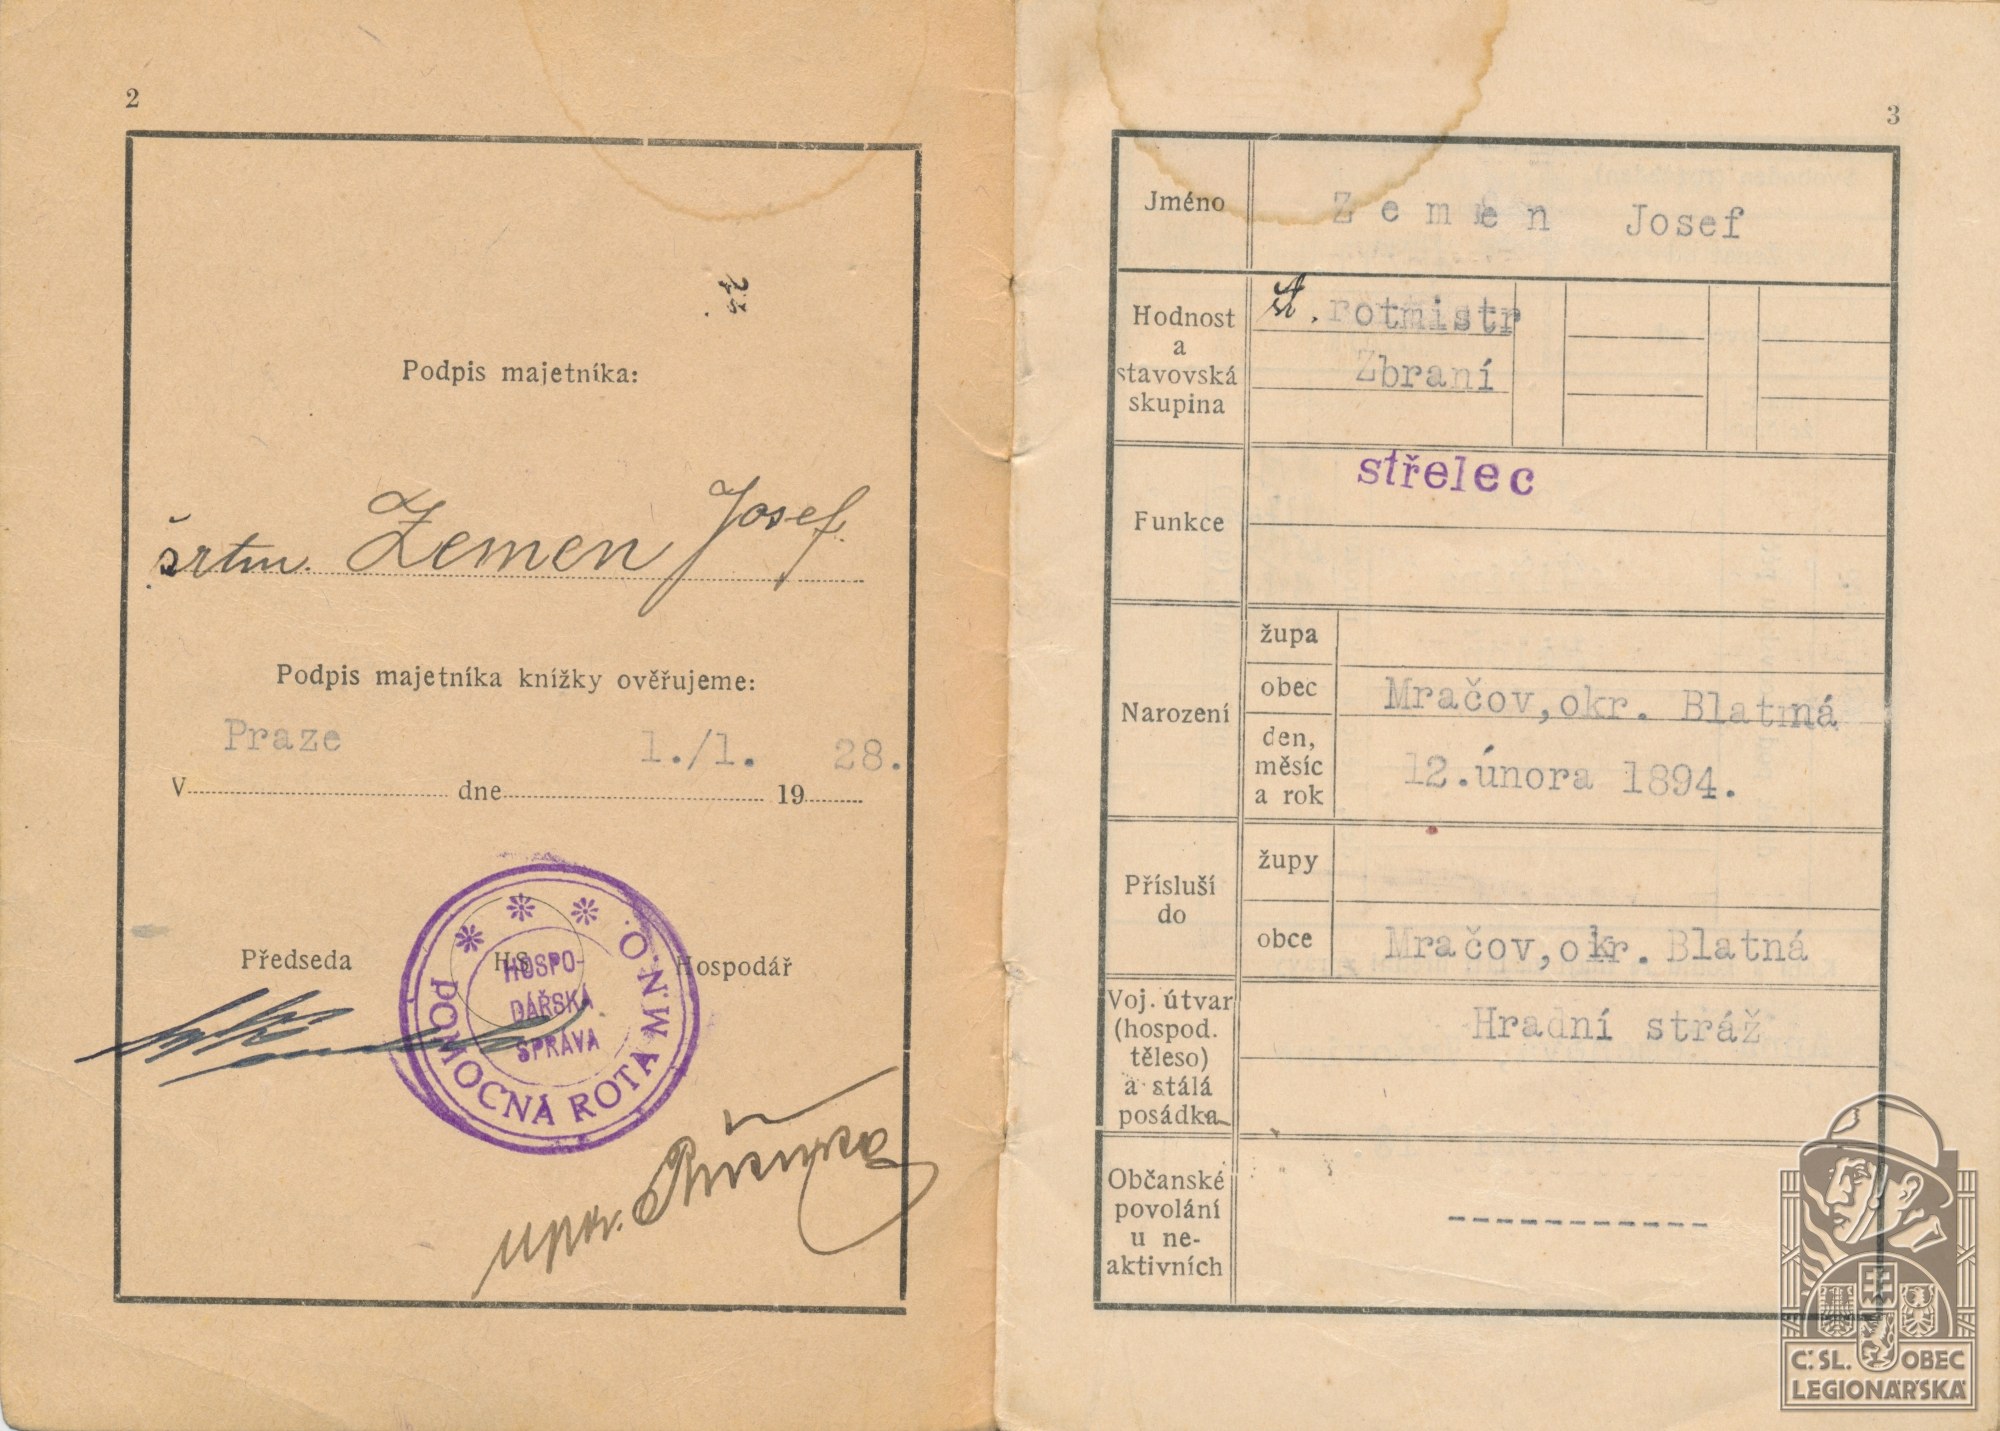 2
Podpis majetníka:
šrtm. Zemen Josef.
Podpis majetníka knížky ověřujeme:
Praze 1./1. 28.
V dne 19
Předseda HS Hospodář
POMOCNÁ ROTA M.N.O.
HOSPO-
DÁŘSKÁ
SPRÁVA
3
Jméno Zemen Josef
Hodnost
a
stavovská
skupina
št. rotmistr
Zbraní
Funkce
střelec
Narození
župa
obec Mračov,okr. Blatná
den,
měsíc
a rok
12.února 1894.
Přísluší
do
župy
obce Mračov,okr.Blatná
Voj. útvar
(hospod.
těleso)
a stálá
posádka
Hradní stráž
Občanské
povolání
u ne-
aktivních
------------
Č. SL. OBEC
LEGIONÁŘSKÁ